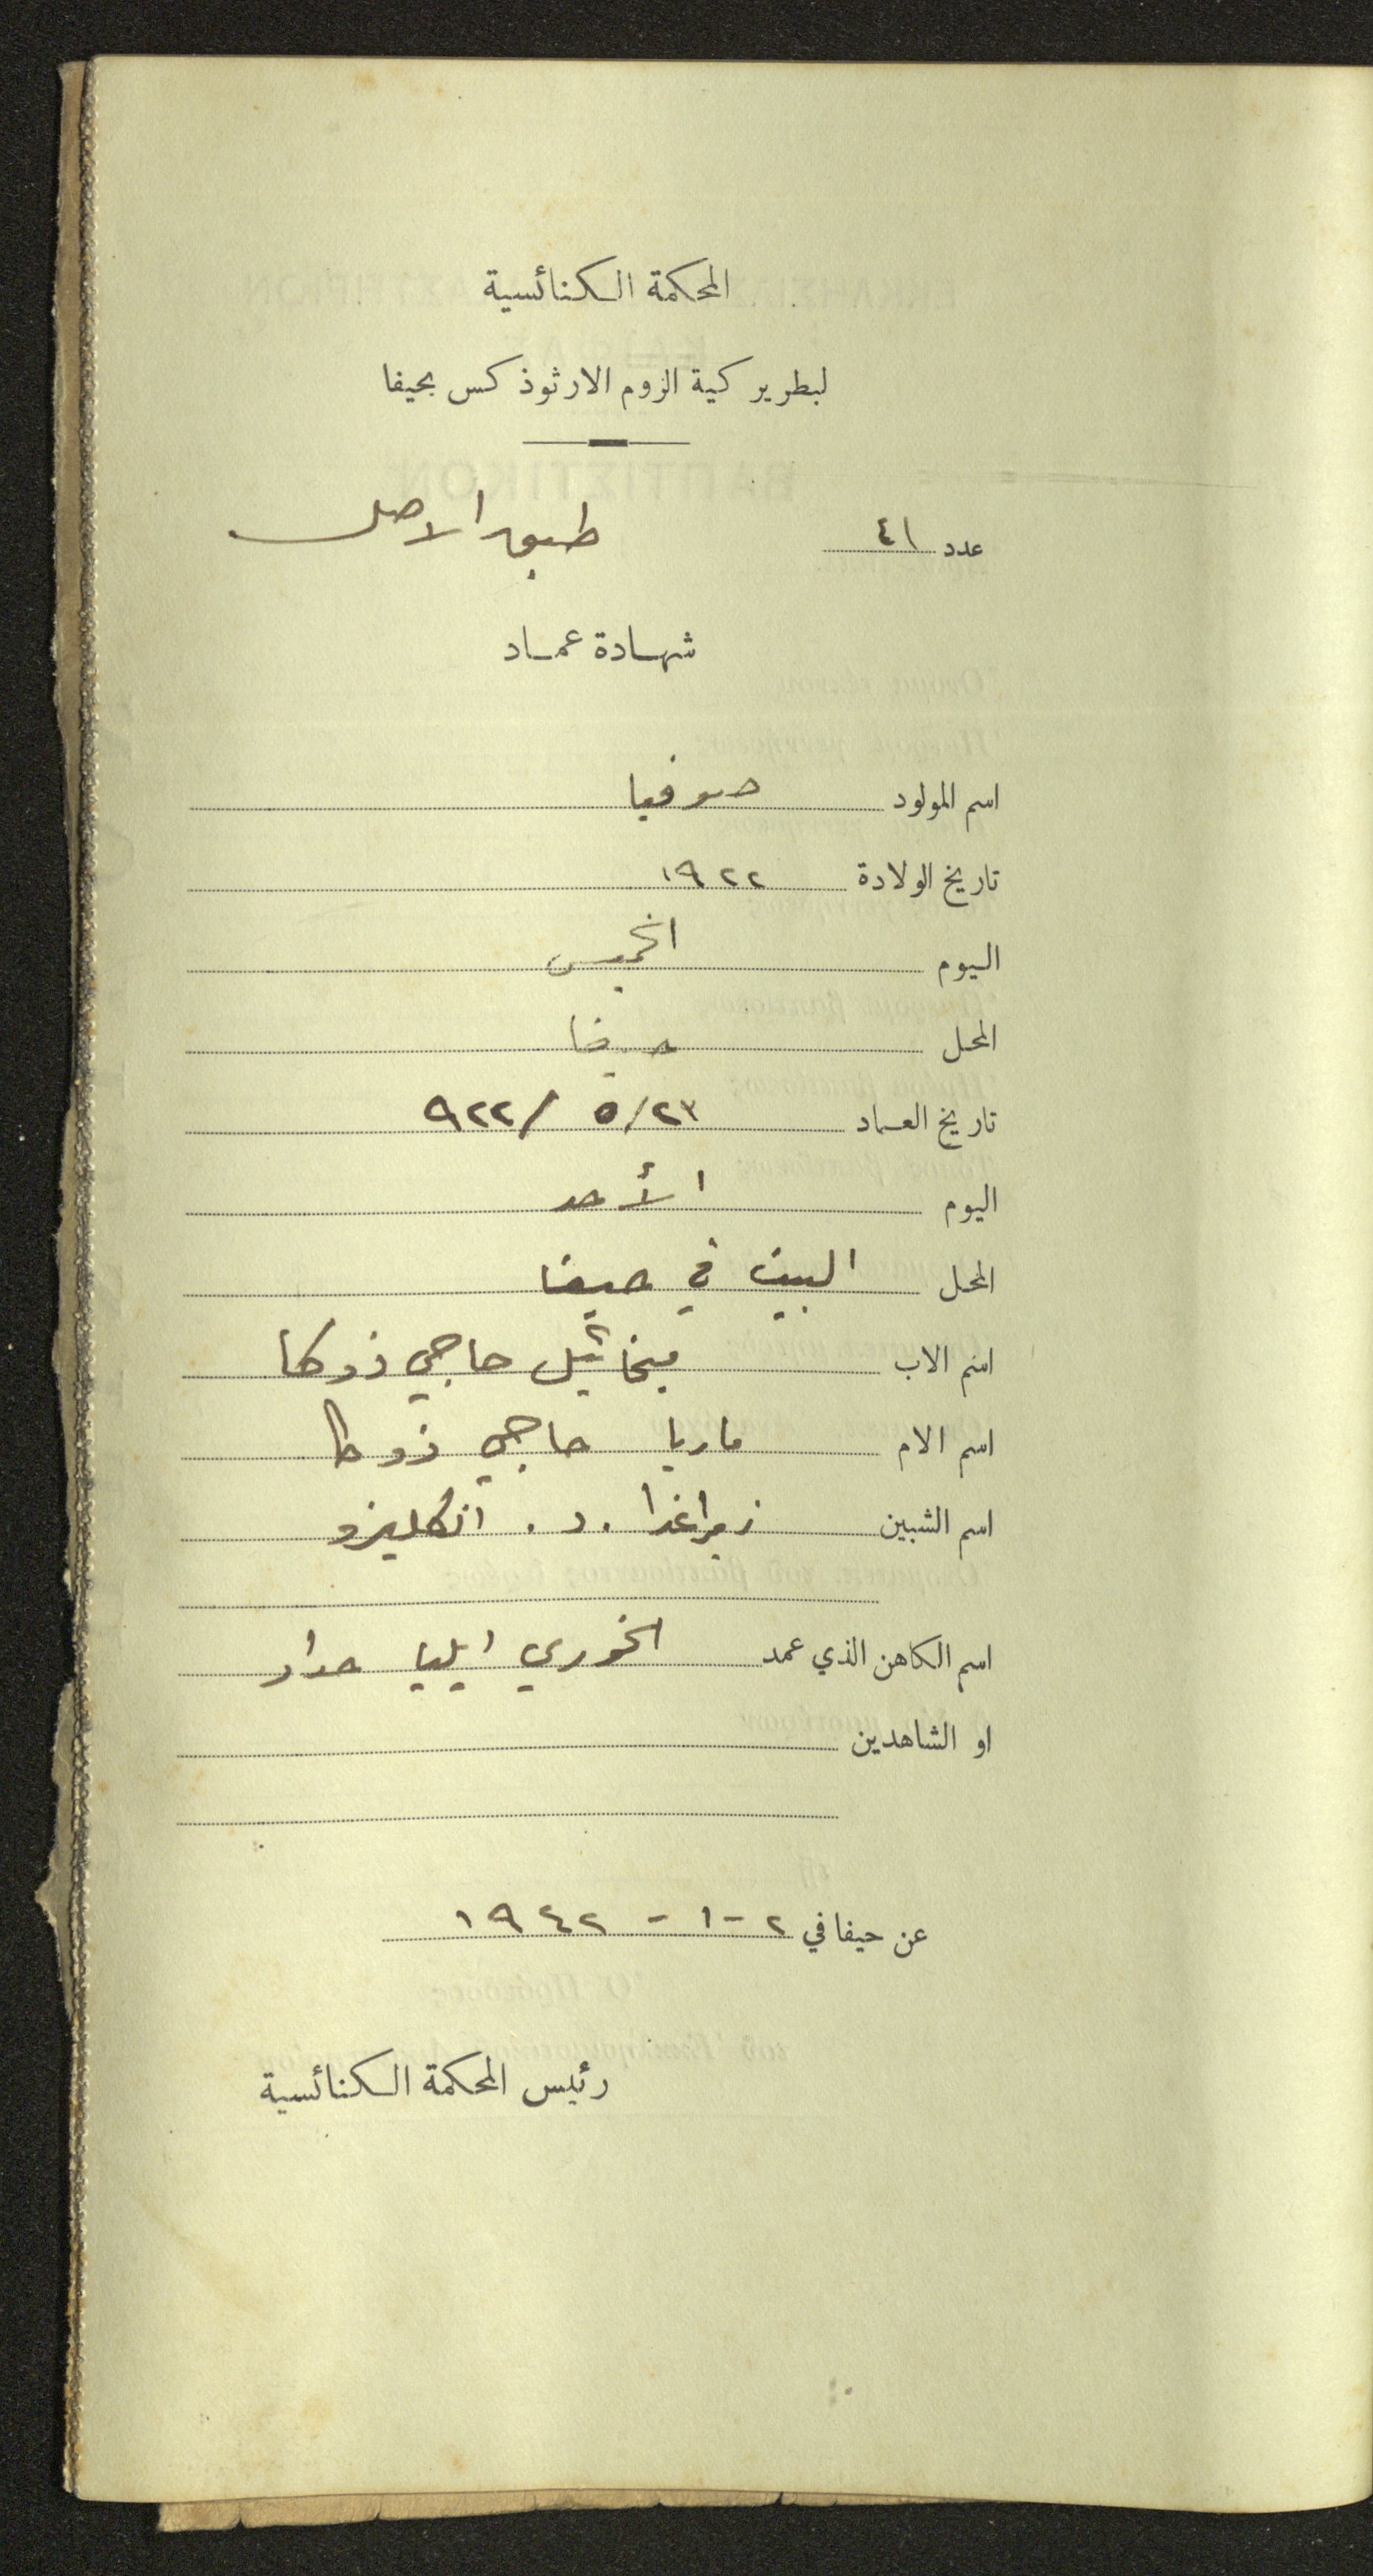 المحكمة الكنائسية
لبطريركية الروم الارثوذكس بحيفا
عدد ٤١
طبق الاصل
شهادة عماد
اسم المولود صوفيا
تاريخ الولادة ١٩٢٢
اليوم الخميس
المحل حيفا
تاريخ العماد ٢٣/٥/٩٢٢
اليوم الأحد
المحل البيت في حيفا
اسم الاب ميخائيل حاجي ذوكا
اسم الام ماريا حاجي ذوكا
اسم الشبين د. انكليزو
اسم الكاهن الذي عمد الخوري ايليا حداد
او الشاهدين
عن حيفا في ٢-١-١٩٤٢
رئيس المحكمة الكنائسية